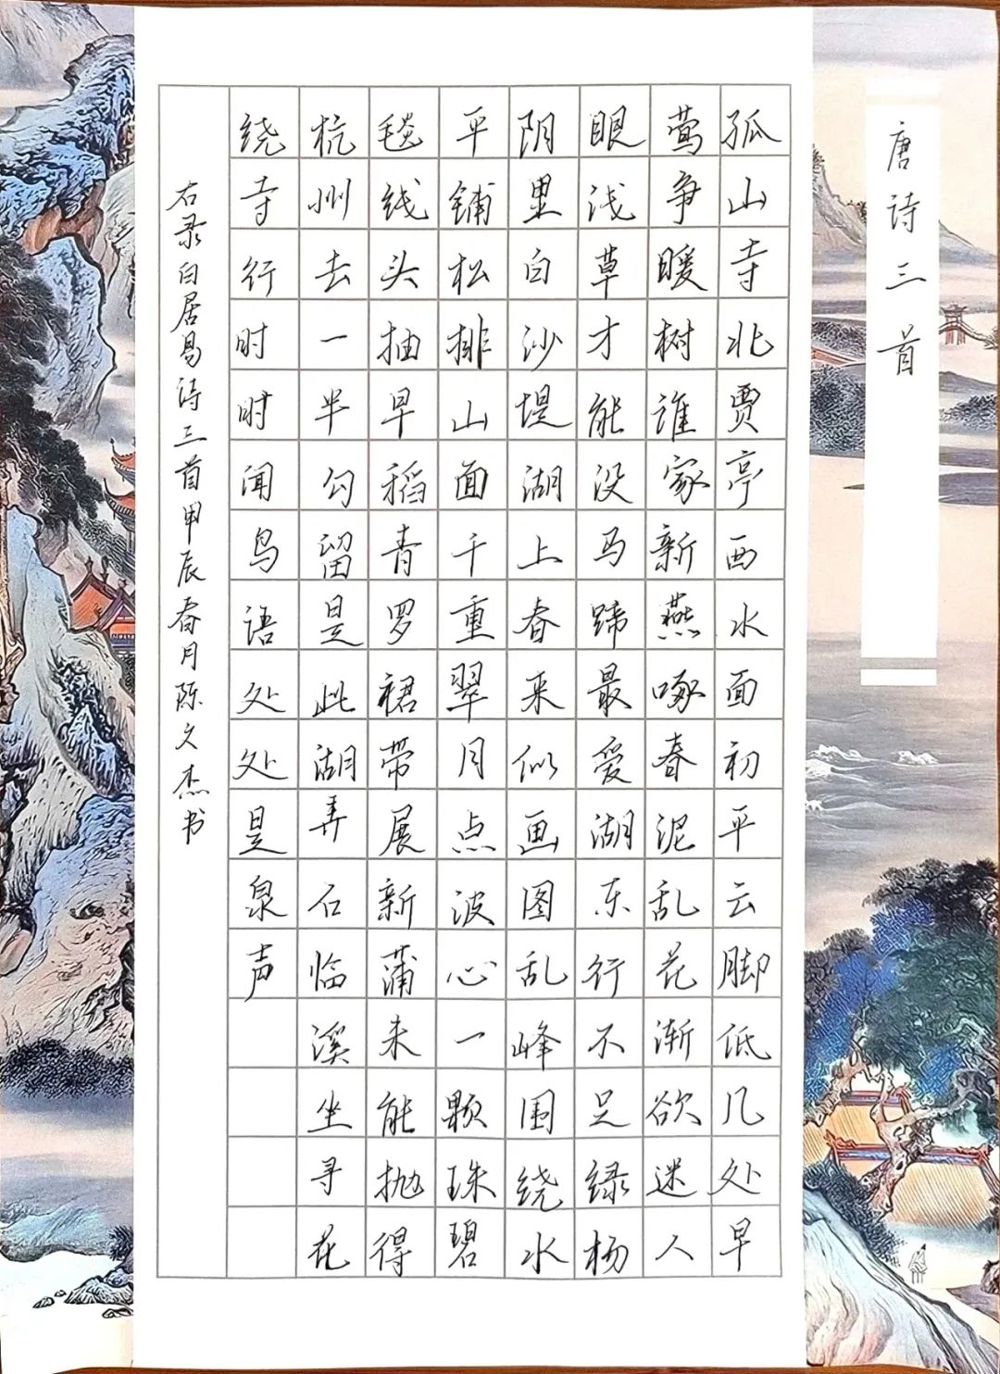 唐诗三首
孤山寺北贾亭西水面初平云脚低几处早
莺争暖树谁家新燕啄春泥乱花渐欲迷人
眼浅草才能没马蹄最爱湖东行不足绿杨
阴里白沙堤湖上春来似画图乱峰围绕水
平铺松排山面千重翠月点波心一颗珠碧
毯线头抽早稻青罗裙带展新蒲未能抛得
杭州去一半勾留是此湖弄石临溪坐寻花
绕寺行时时闻鸟语处处是泉声
右录白居易诗三首甲辰春月陈文杰书